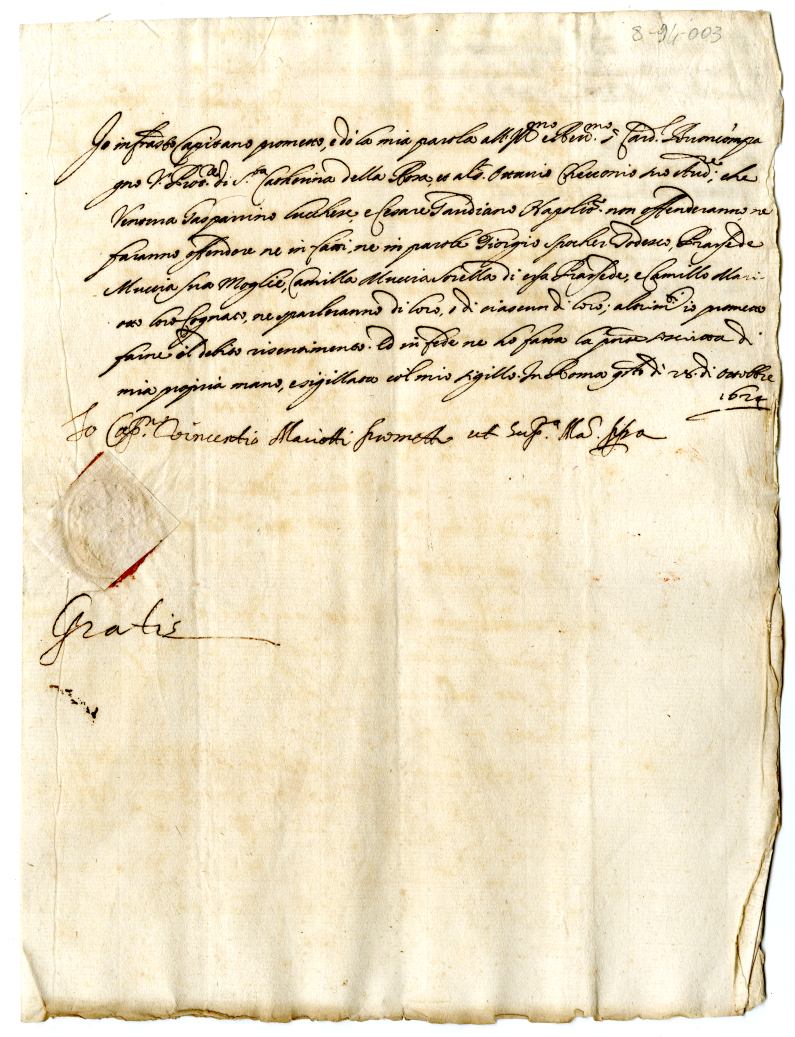 8-94-003
Io infratto Capitano prometto, e dò la mia parola all' Ill.mo e Rev.mo S.r Card.l Boncompa
gno V. Prot.re di S.ta Catherina della Rosa, et al S. Ottavio Aud.re, che
Gasparrino Lucchese, e Cesare Napolit.o non offenderanno ne
faranno offendere ne in fatti, ne in parole Giorgio Todesco, Prassede
Muccia sua Moglie, Camilla Muccia sorella di essa Prassede, e Camillo Mari
otto loro Cognato, ne sparleranno di loro, o di ciascun di loro; altrim.ti io prometto
farne il debito risentimento. Ed in fede ne ho fatta la p'nte scritta di
mia propria mano, e sigillata col mio sigillo. In Roma q'sto dì 28. di Ottobre
1624
Io Cap.o Vincentio Mariotti prometto ut sup.a Ma. ppa
Gratis